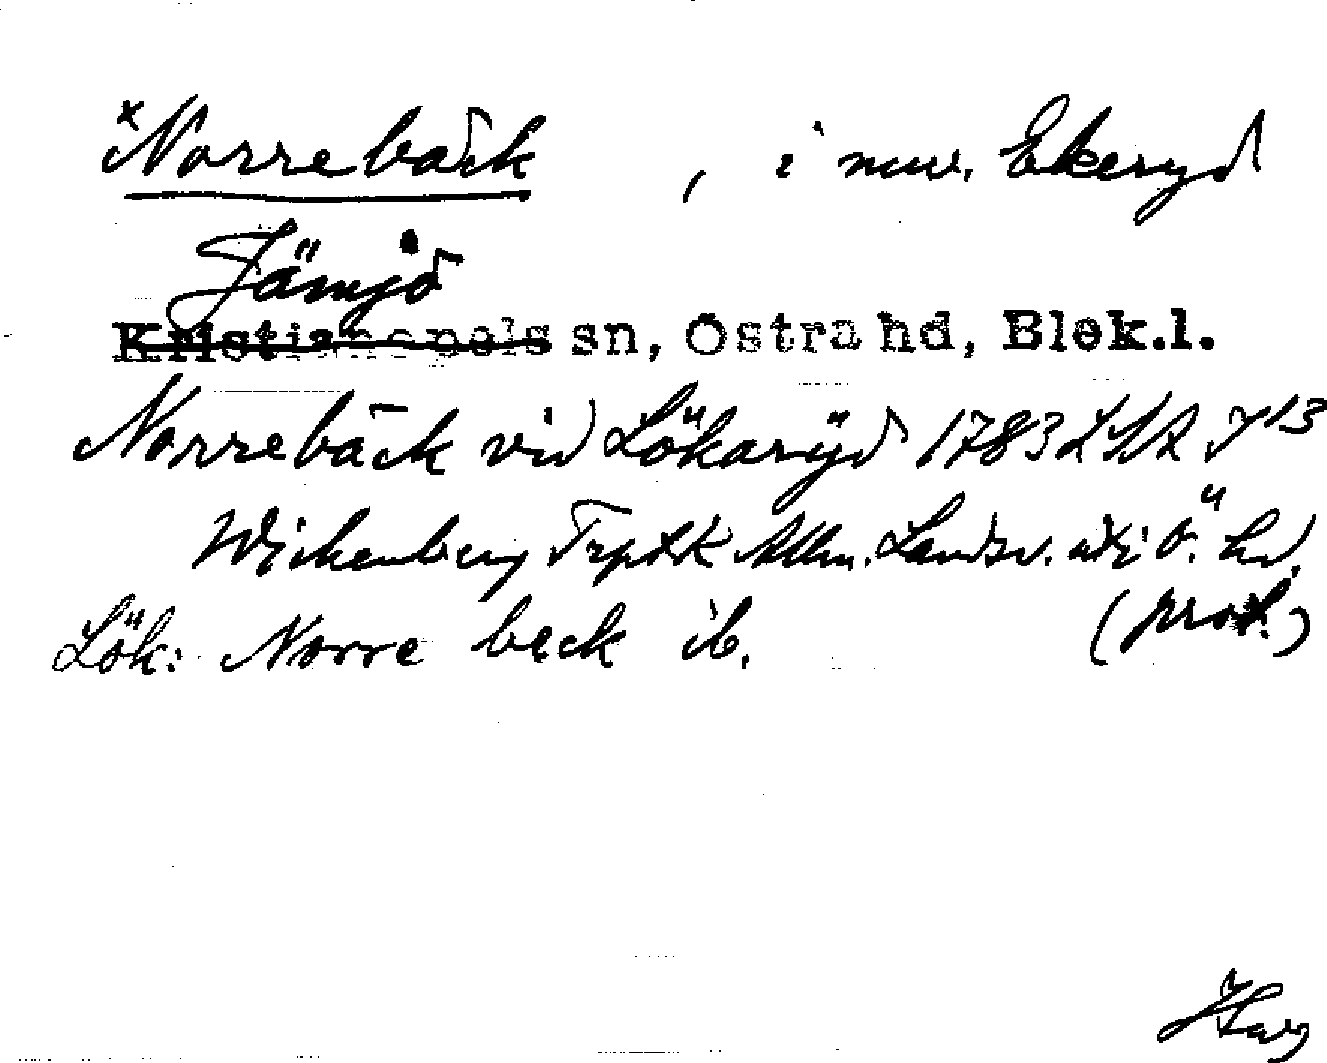 *Norrebäck , i nuv. Ekeryd
Jämjö
Kristianopels sn, Östra hd, Blek.l.
Norrebäck vid Lökarÿd 1783 LSA J 13
Wickenberg Trptsk Allm. Landsv. uti Ö. hd.
Lök: Norre beck ib. (prot.)